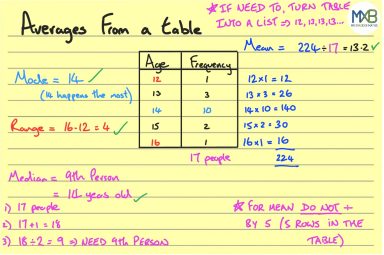 Averages From a table
* IF NEED TO, TURN TABLE
INTO A LIST ⇒ 12,13,13,13...
MXB
Mean = 224÷17 = 13.2 ✓
Mode = 14 ✓
(14 happens the most)
Range = 16-12 = 4 ✓
Age Frequency
12 1
13 3
14 10
15 2
16 1
17 people
12×1 = 12
13×3 = 26
14×10 = 140
15×2 = 30
16×1 = 16
224
Median = 9th Person
= 14 years old ✓
1) 17 people
2) 17+1 = 18
3) 18÷2 = 9 ⇒ NEED 9th PERSON
* FOR MEAN DO NOT ÷
BY 5 (5 ROWS IN THE
TABLE)